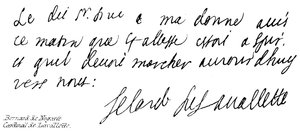 Le dit Sr. Duc ma donné auis
ce matin que Galasse estoit a
et quil deuoit marcher auiourdhuy
vers nous.
Le Card. de Lauallette
Bernard de Nogaret
Cardinal de Lavallette.